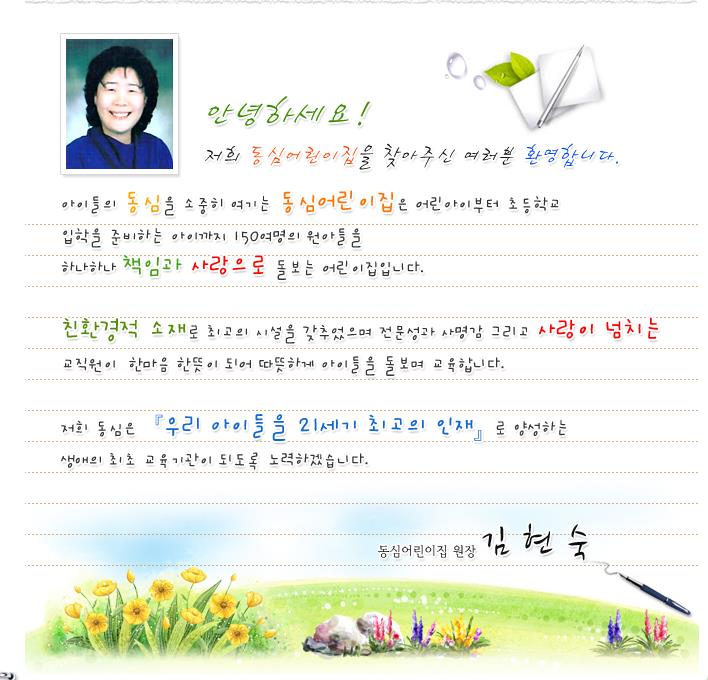 안녕하세요!
저희 동심어린이집을 찾아주신 여러분 환영합니다.
아이들의 동심을 소중히 여기는 동심어린이집은 어린아이부터 초등학교
입학을 준비하는 아이까지 150여명의 원아들을
하나하나 책임과 사랑으로 돌보는 어린이집입니다.
친환경적 소재로 최고의 시설을 갖추었으며 전문성과 사명감 그리고 사랑이 넘치는
교직원이 한마음 한뜻이 되어 따뜻하게 아이들을 돌보며 교육합니다.
저희 동심은 『우리 아이들을 21세기 최고의 인재』로 양성하는
생애의 최초 교육기관이 되도록 노력하겠습니다.
동심어린이집 원장 김현숙